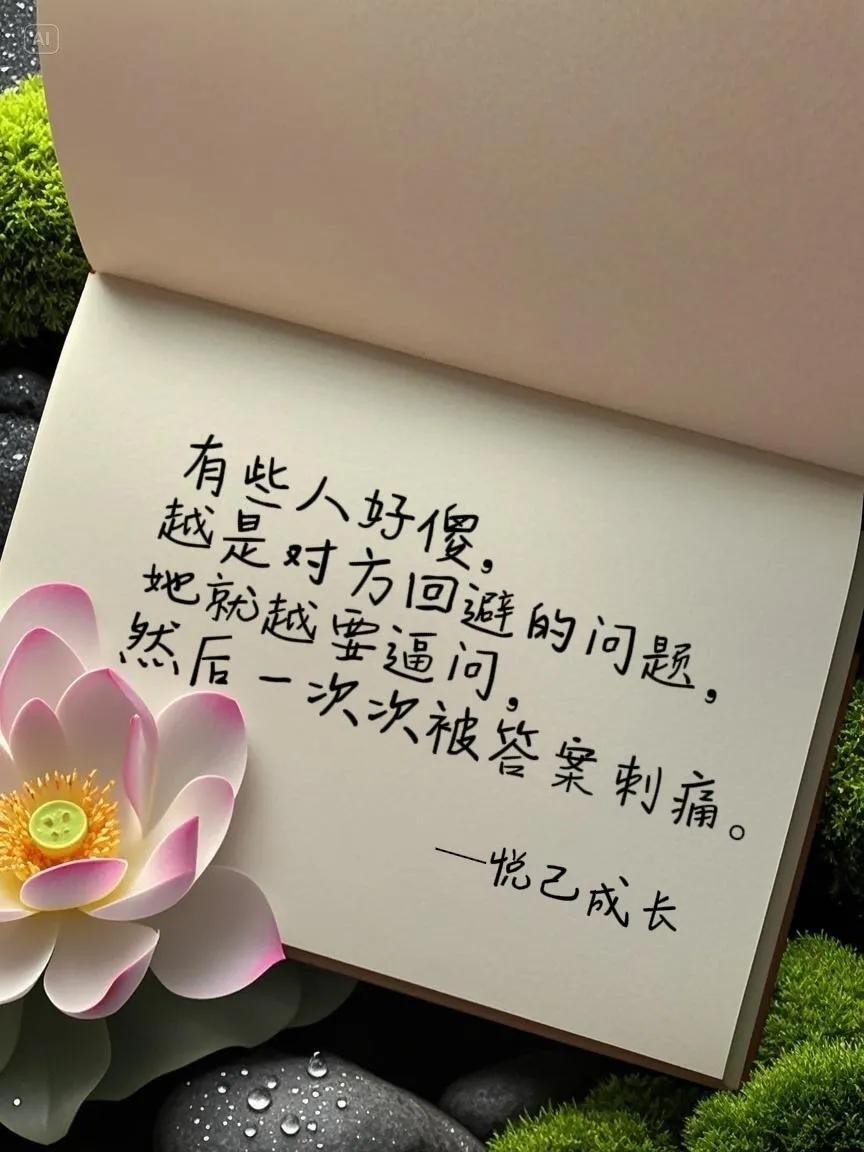 AI
有些人好傻,
越是对方回避的问题,
她就越要逼问,
然后一次次被答案刺痛。
——悦己成长